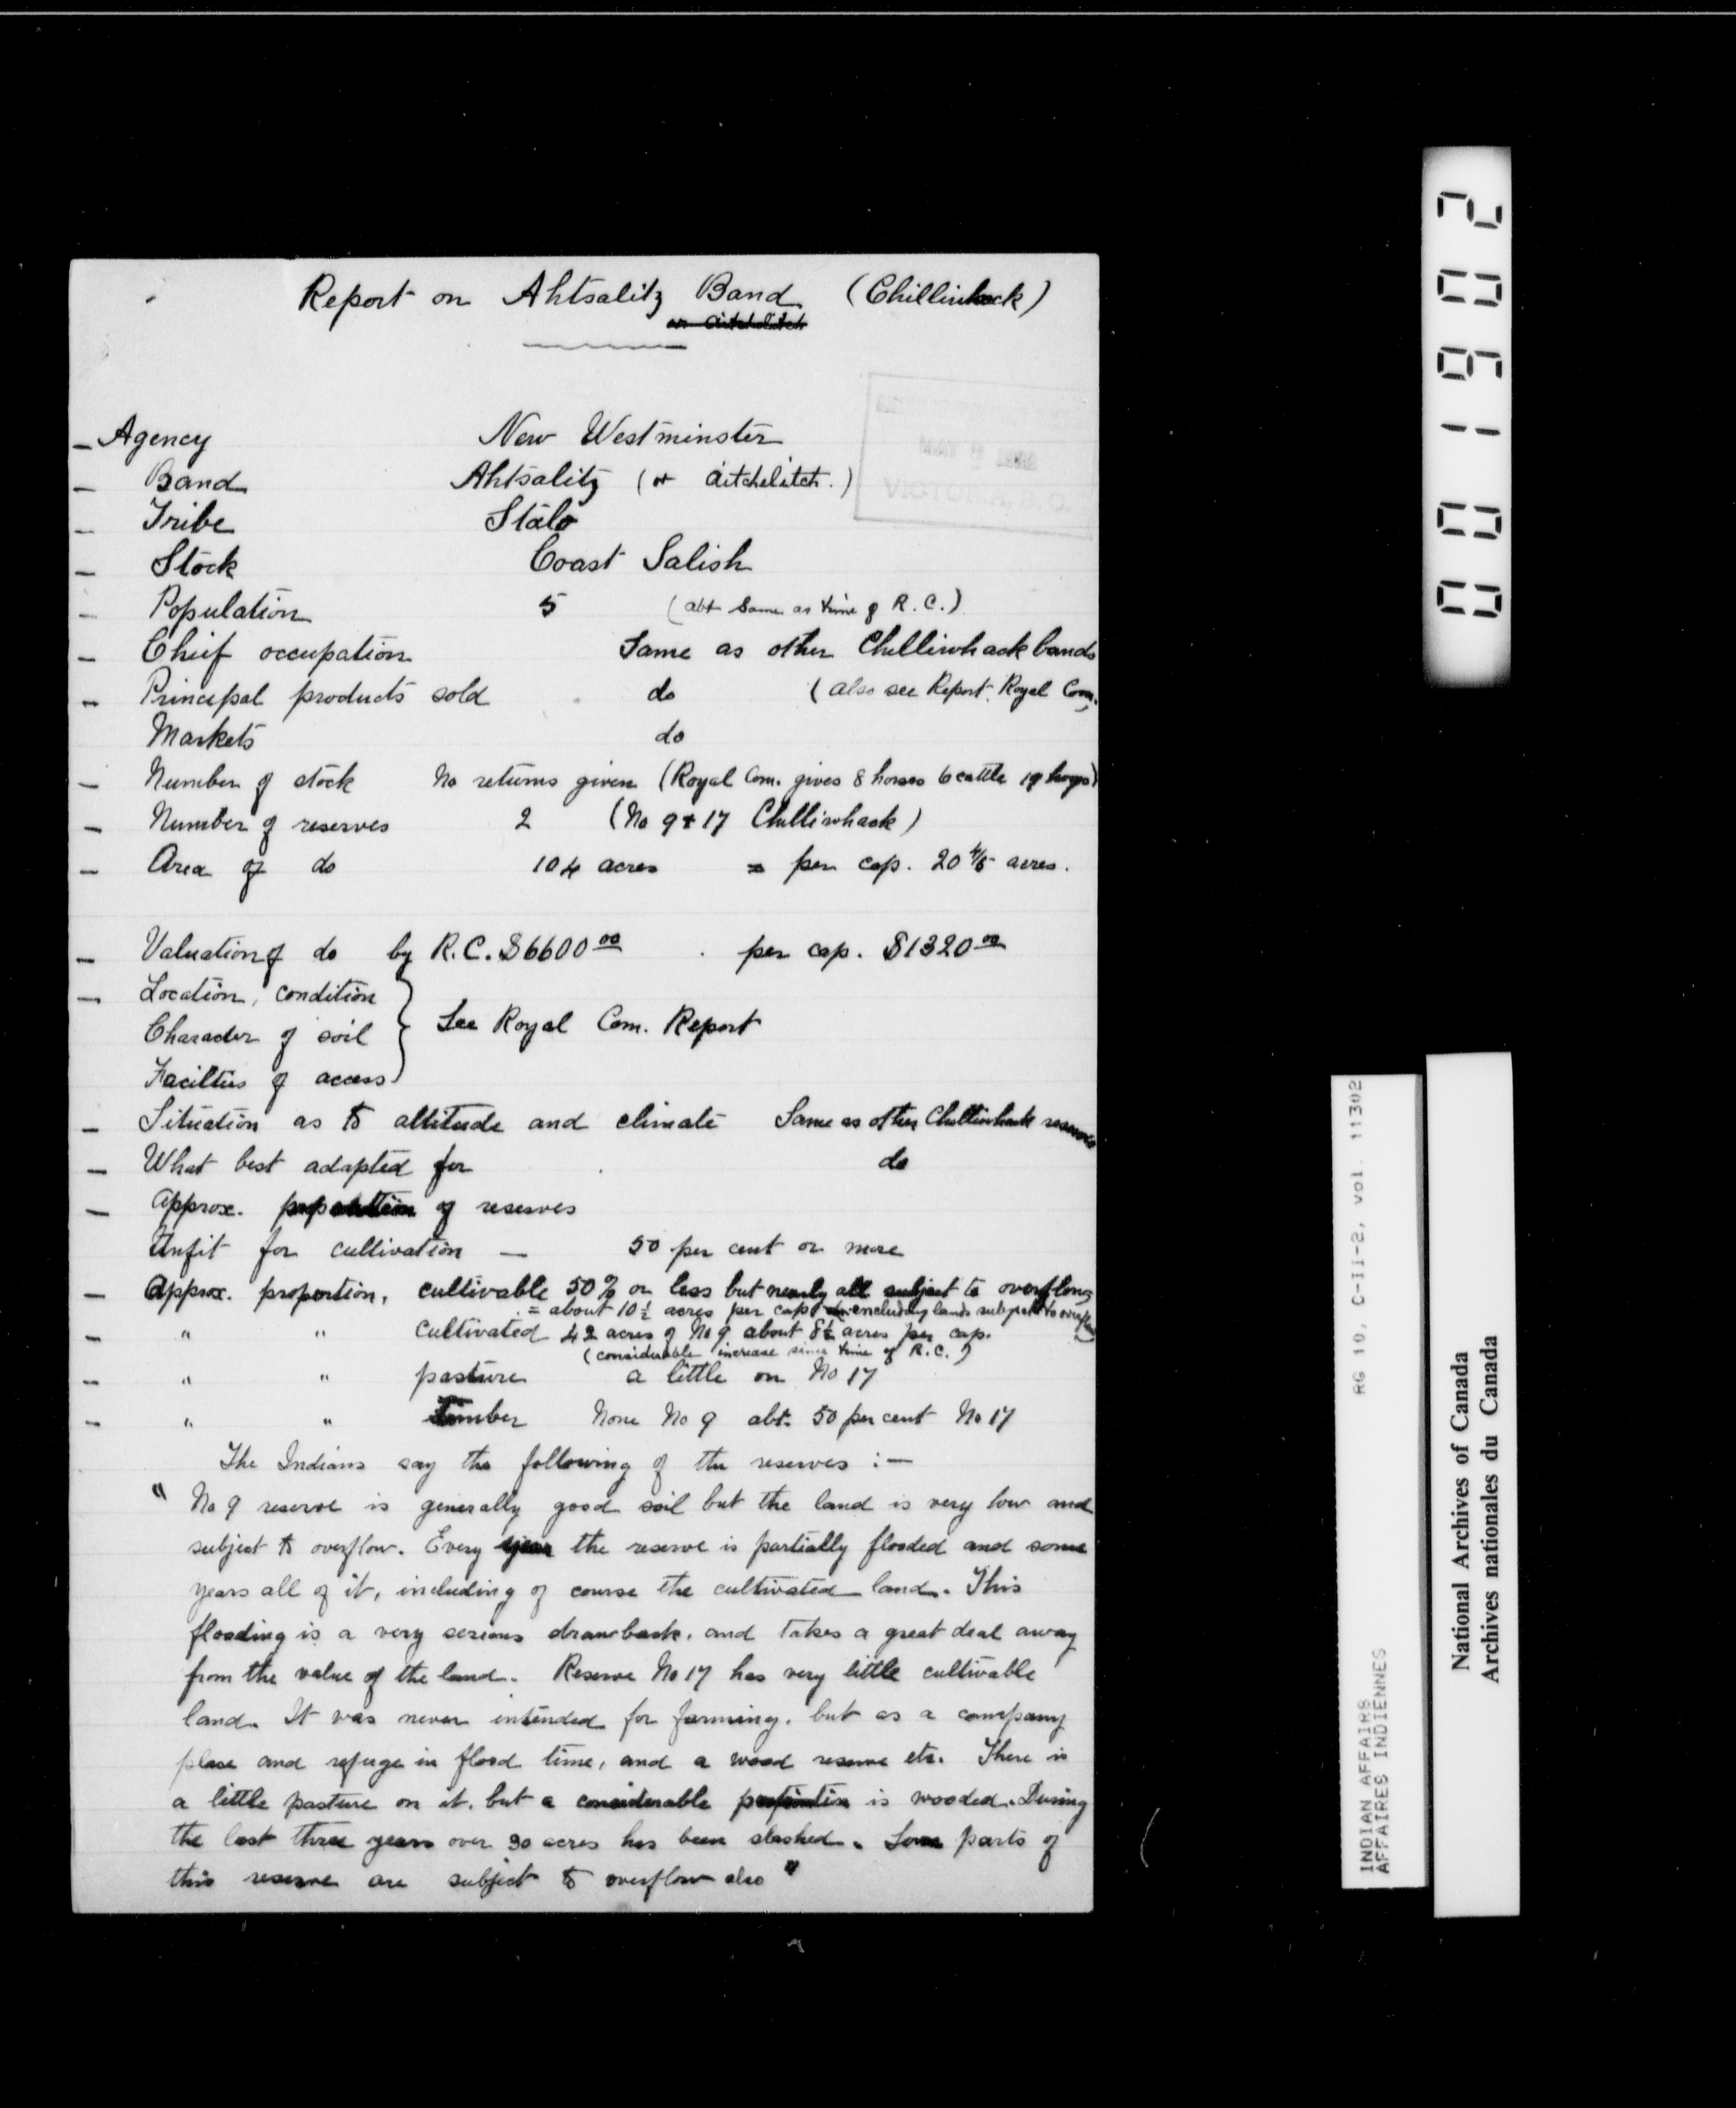 Report on Ahtsalitz Band (Chilliwhack)
or Aitchelitch
Agency New Westminster
Band Ahtsalitz (or Aitchelitch.)
Tribe Stalo
Stock Coast Salish
Population 5 (abt same as time of R.C.)
Chief occupation Same as other Chilliwhack bands
Principal products sold do (also see Report Royal Com.)
Markets do
Number of stock No returns given (Royal Com. gives 8 horses 6 cattle 19 hogs)
Number of reserves 2 (No 9 + 17 Chilliwhack)
Area of do 104 acres = per cap. 20 4/5 acres.
Valuation of do by R.C. $6600 00 per cap. $1320 00
Location, condition
Character of soil See Royal Com. Report
Facilties of access
Situation as to altitude and climate Same as other Chilliwhack reserves
What best adapted for do
Approx. proportion of reserves
Unfit for cultivation — 50 per cent or more
Approx. proportion, cultivable 50% or less but nearly all subject to overflow
= about 10½ acres per cap including lands subject to overflow
" " cultivated 42 acres of No 9 about 8½ acres per cap.
(considerable increase since time of R.C.)
" " pasture a little on No 17
" " timber None No 9 abt. 50 per cent No 17
The Indians say the following of the reserves :—
" No 9 reserve is generally good soil but the land is very low and
subject to overflow. Every year the reserve is partially flooded and some
years all of it, including of course the cultivated land. This
flooding is a very serious drawback, and takes a great deal away
from the value of the land. Reserve No 17 has very little cultivable
land. It was never intended for farming, but as a camping
place and refuge in flood time, and a wood reserve etc. There is
a little pasture on it, but a considerable proportion is wooded. During
the last three years over 30 acres has been slashed. Some parts of
this reserve are subject to overflow also "
VICTORIA, B.C.
001902
RG 10, C-II-2, vol. 11302
INDIAN AFFAIRS
AFFAIRES INDIENNES
National Archives of Canada
Archives nationales du Canada